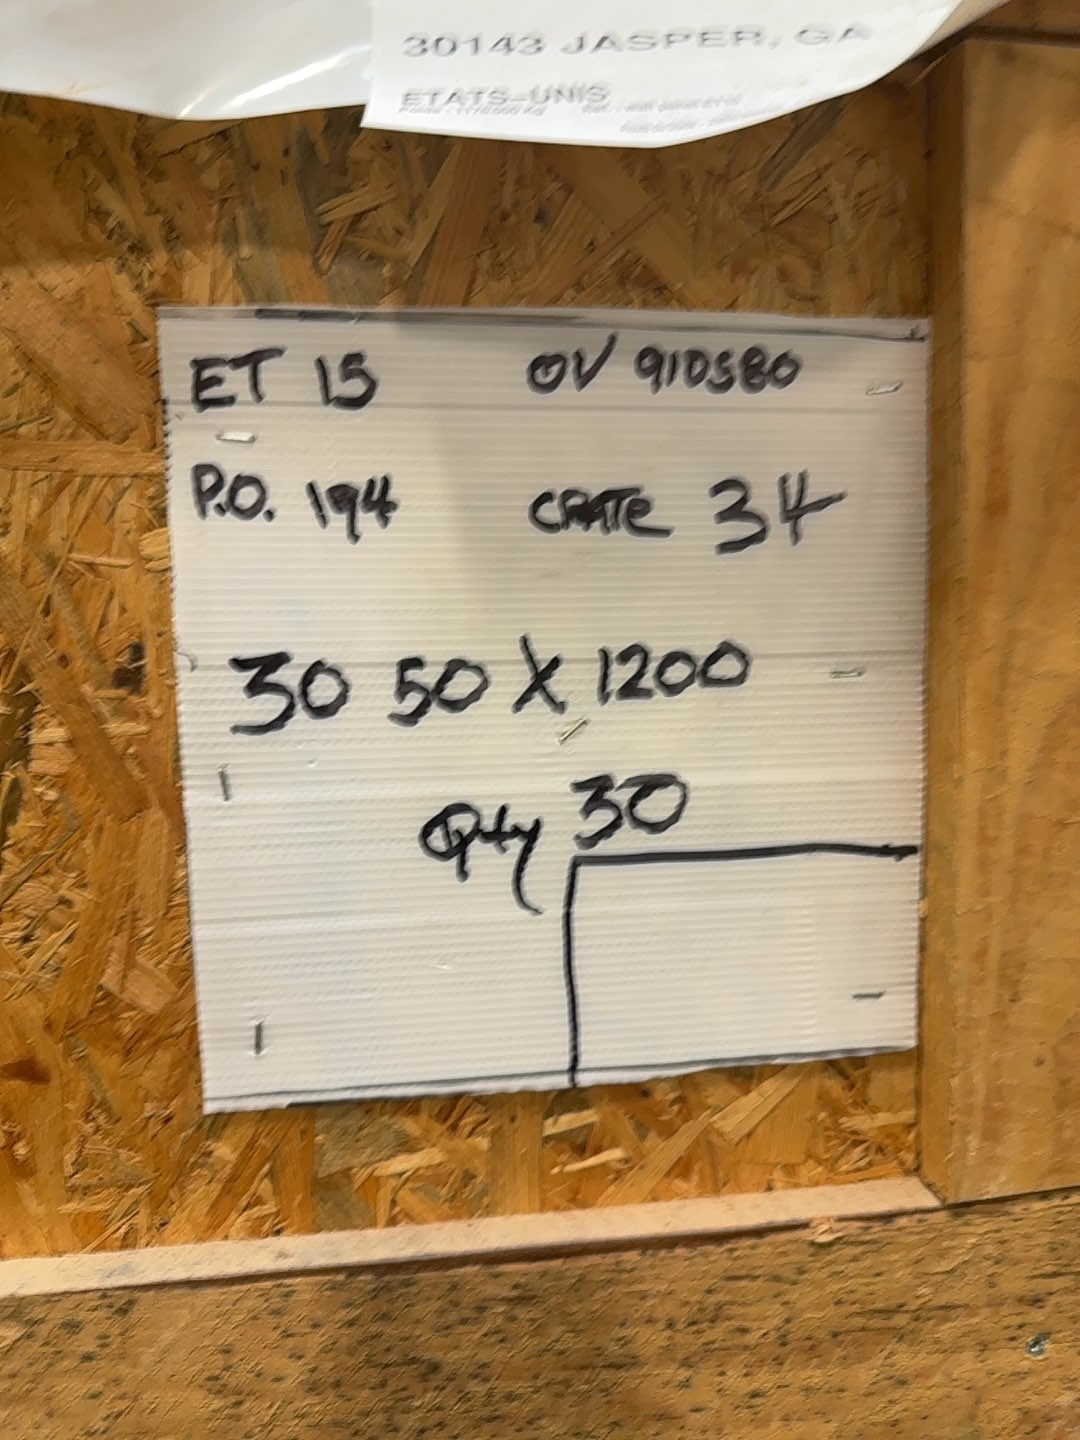 30143 JASPER, GA
ETATS-UNIS
ET 15 OV 910580
P.O. 194 CRATE 34
30 50 X 1200
Qty 30